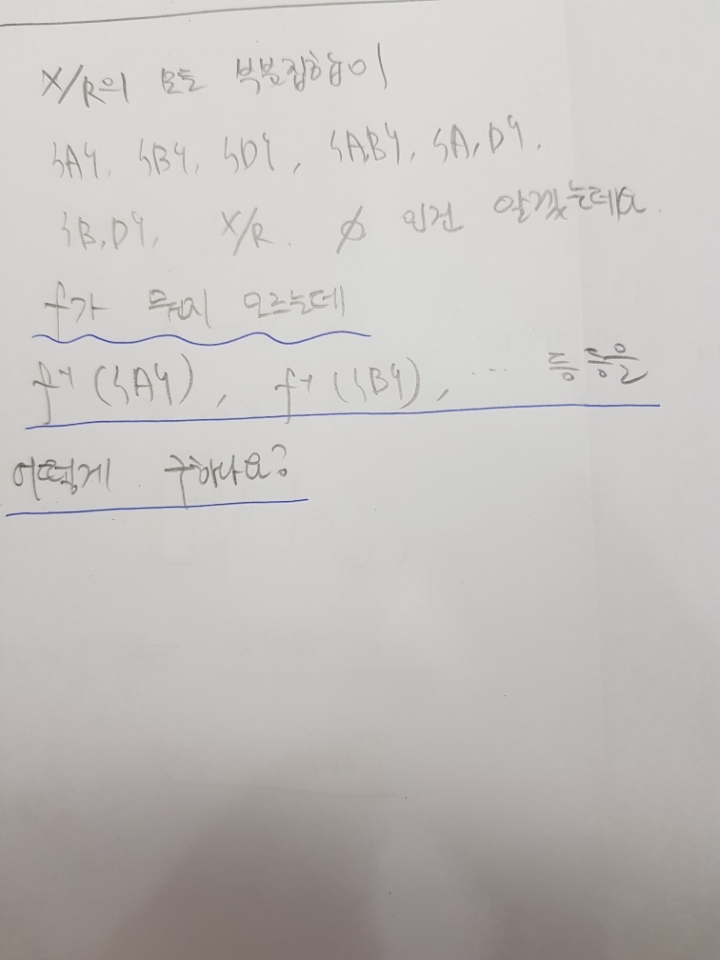 X/R의 모든 부분집합이
{A}, {B}, {D}, {A,B}, {A,D},
{B,D}, X/R, ∅ 인건 알겠는데요.
f가 뭔지 모르는데
f⁻¹({A}), f⁻¹({B}), … 등등을
어떻게 구하나요?